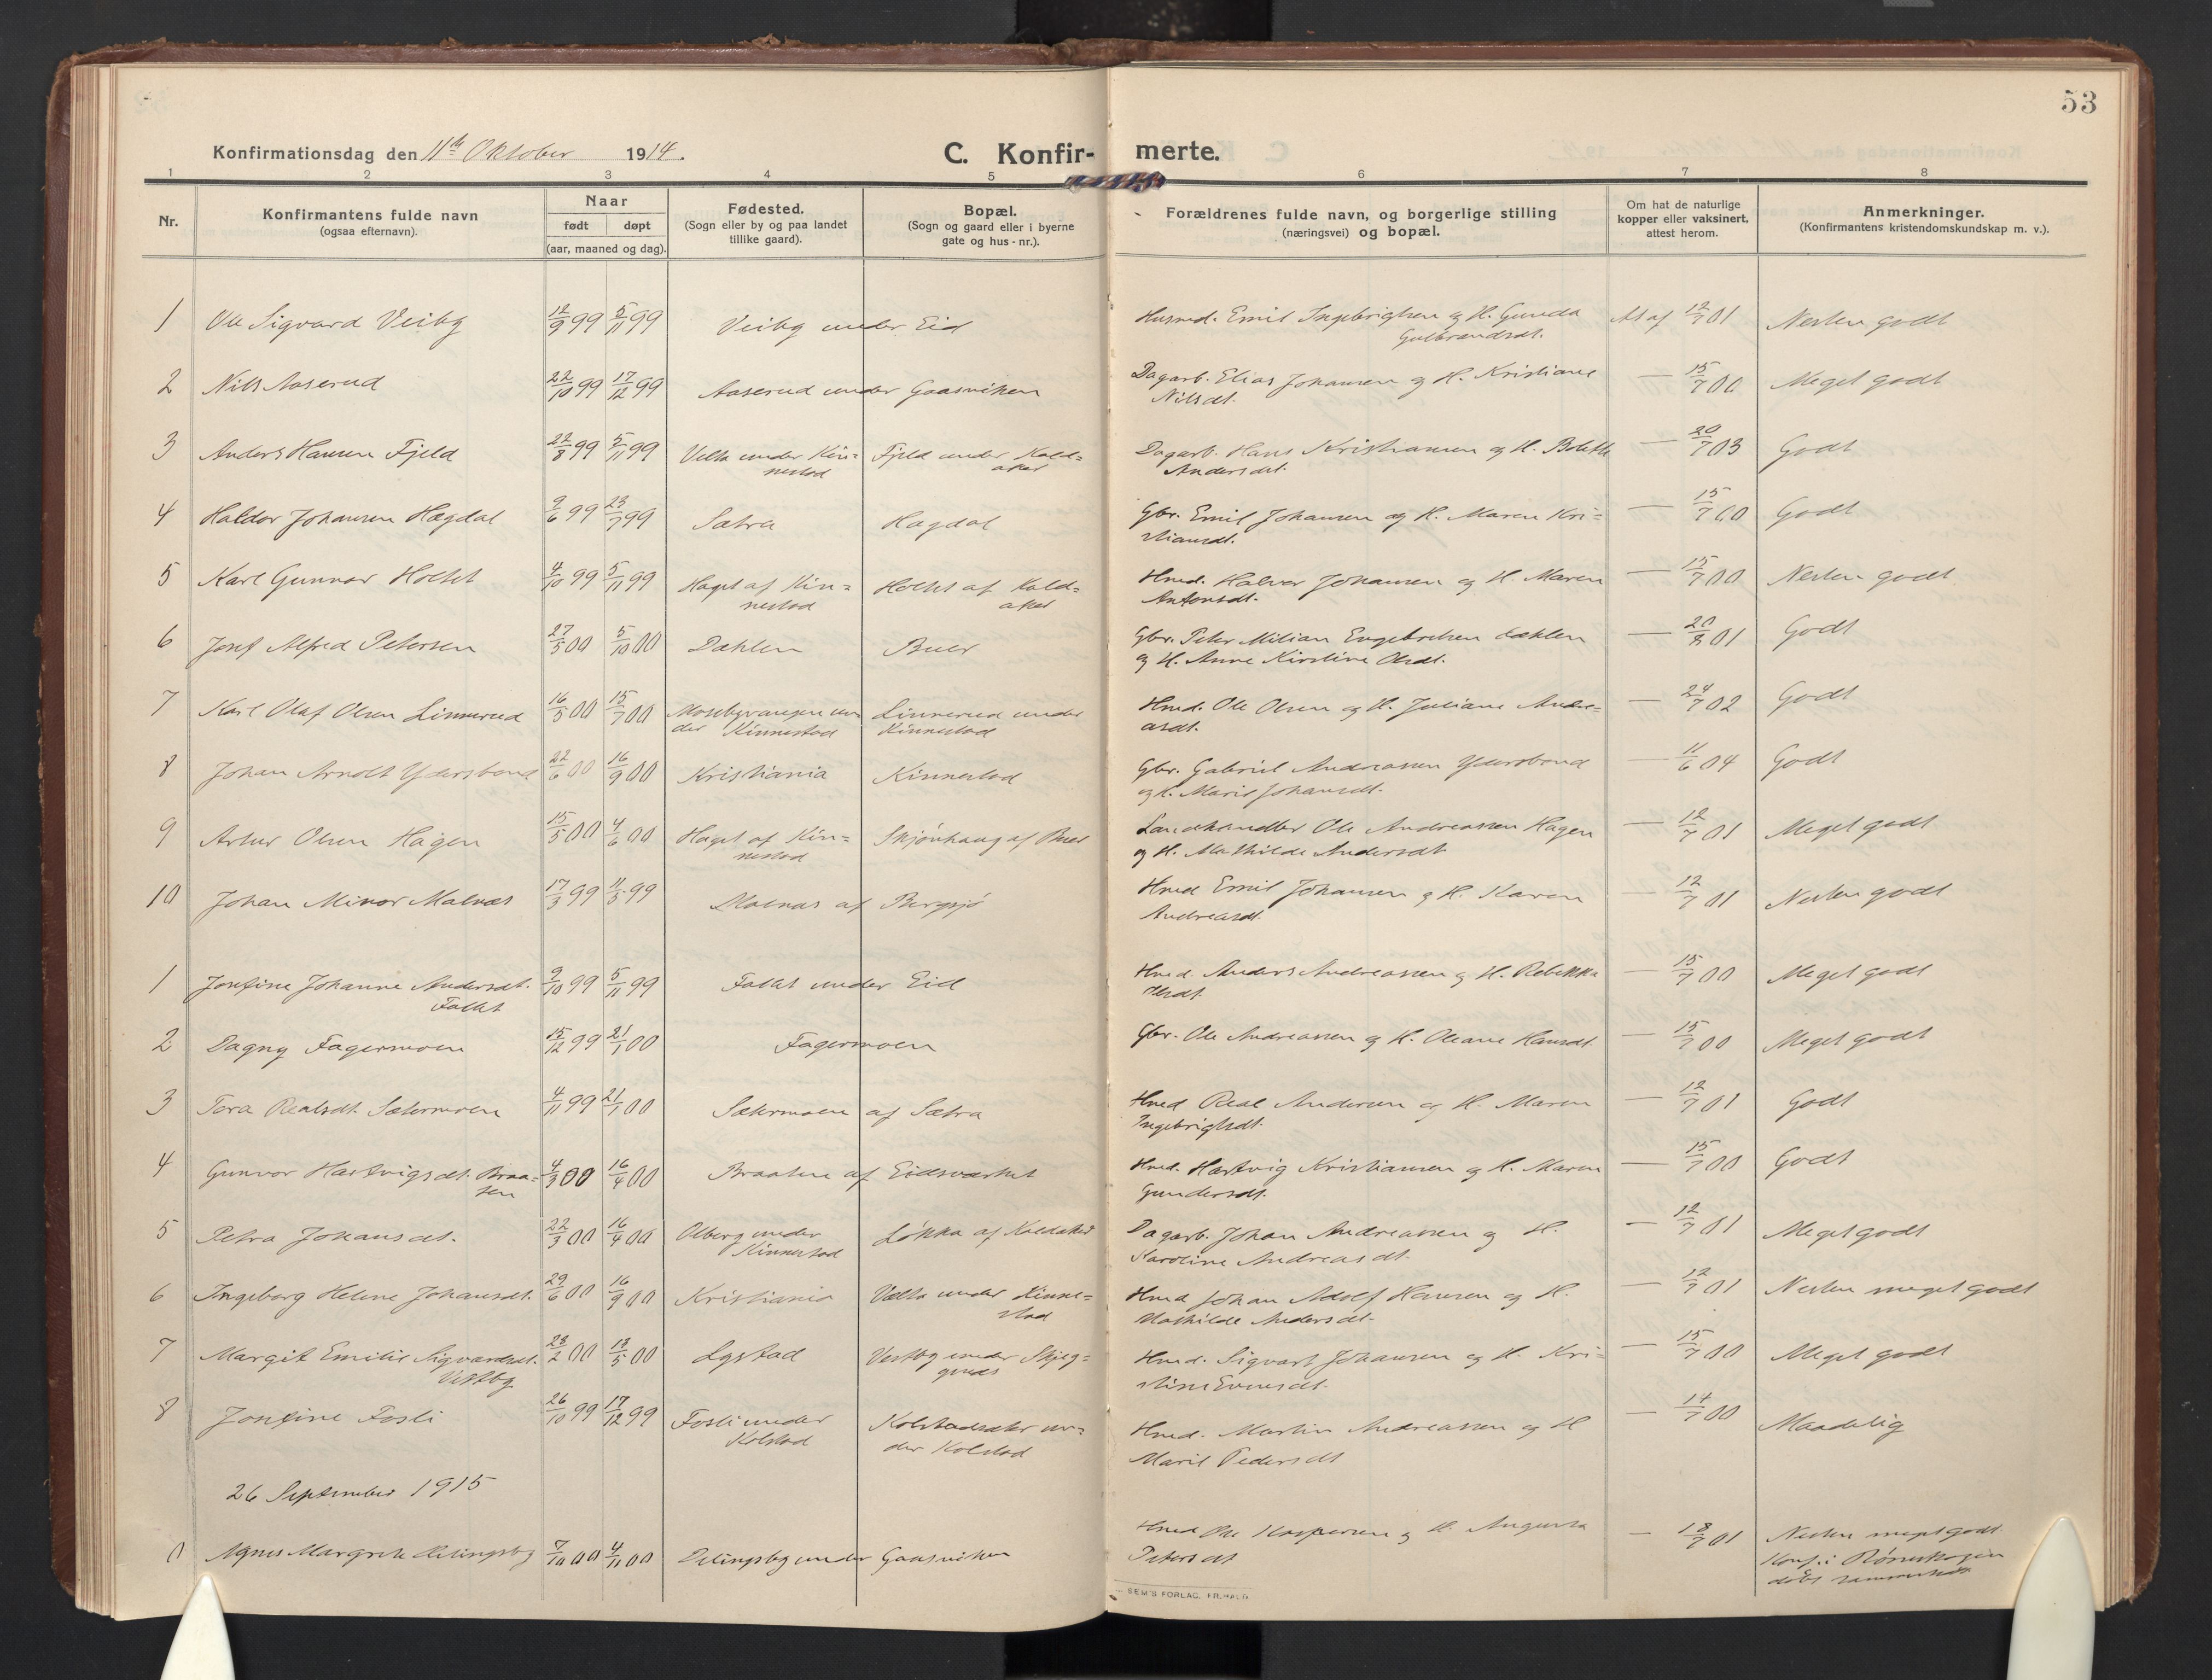 53
Konfirmationsdag den 11te Oktober 1914.
C. Konfir- merte.
1 2 3 4 5 6 7 8
Nr.
Konfirmantens fulde navn
(ogsaa efternavn).
Naar
født døpt
(aar, maaned og dag).
Fødested.
(Sogn eller by og paa landet
tillike gaard).
Bopæl.
(Sogn og gaard eller i byerne
gate og hus-nr.).
Forældrenes fulde navn, og borgerlige stilling
(næringsvei) og bopæl.
Om hat de naturlige
kopper eller vaksinert,
attest herom.
Anmerkninger.
(Konfirmantens kristendomskundskap m. v.).
1 Ole Sigvard Veiby 12/9 99 5/11 99 Veiby under Eid Husmd. Emil Ingebrigtsen og H. Gunda At af 12/7 01 Nesten godt
Gulbrandsdt.
2 Nils Aaserud 22/10 99 17/12 99 Aaserud under Gaasviken Dagarb. Elias Johansen og H. Kristiane — 15/7 00 Meget godt
Nilsdt.
3 Anders Hansen Fjeld 22/8 99 5/11 99 Velta under Kin= Fjeld under Kold= Dagarb. Hans Kristiansen og H. Bolette — 20/7 03 Godt
nestad aker Andersdt.
4 Haldor Johansen Hægdal 9/6 99 23/7 99 Sætra Hagdal Gbr. Emil Johansen og H. Maren Kri= — 15/7 00 Godt
stiansdt.
5 Karl Gunnar Holtet 4/10 99 5/11 99 Haget af Kin= Holtet af Kold= Hmd. Halvor Johansen og H. Maren — 15/7 00 Nesten godt
nestad aker Antonsdt.
6 Josef Alfred Petersen 27/5 00 5/10 00 Dahlen Buer Gbr. Peter Milian Engebretsen Dahlen — 20/8 01 Godt
og H. Anne Kirstine Olsdt.
7 Karl Olaf Olsen Linnerud 16/5 00 15/7 00 Mosebyvangen un- Linnerud under Hmd. Ole Olsen og H. Juliane Andre= — 24/7 02 Godt
der Kinnestad Kinnestad asdt.
8 Johan Arnolt Ydersbond 22/6 00 16/9 00 Kristiania Kinnestad Gbr. Gabriel Andreassen Ydersbond — 11/6 04 Godt
og H. Marie Johansdt.
9 Artur Olsen Hagen 15/5 00 4/6 00 Haget af Kin= Skjønhaug af Buer Landhandler Ole Andreassen Hagen — 12/7 01 Meget godt
nestad og H. Mathilde Andersdt
10 Johan Minor Malnæs 17/3 99 11/5 99 Malnæs af Bergsjø Hmd Emil Johansen og H. Karen — 12/7 01 Nesten godt
Andreasdt.
1 Josefine Johanne Andersdt. 9/10 99 5/11 99 Fallet under Eid Hmd. Anders Andreassen og H. Rebekka — 15/7 00 Meget godt
Fallet Olsdt.
2 Dagny Fagermoen 15/12 99 21/1 00 Fagermoen Gbr. Ole Andreassen og H. Oleane Hansdt. — 15/7 00 Meget godt
3 Tora Realsdt. Sætermoen 4/11 99 21/1 00 Sætermoen af Sætra Hmd Real Andersen og H. Maren — 12/7 01 Godt
Ingebrigtsdt.
4 Gunvor Hartvigsdt. Braa= 4/3 00 16/4 00 Braaten af Eidsværket Hmd. Hartvig Kristiansen og H. Maren — 15/7 00 Godt
ten Gundersdt.
5 Petra Johansdt. 22/3 00 16/4 00 Olberg under Løkka af Koldaker Dagarb. Johan Andreassen og H. — 12/7 01 Meget godt
Kinnestad Karoline Andreasdt.
6 Ingeborg Helene Johansdt. 29/6 00 16/9 00 Kristiania Velta under Kinne= Hmd Johan Adolf Hansen og H. — 12/7 01 Nesten meget godt
stad Mathilde Andersdt.
7 Margit Emilie Sigvardsdt. 28/2 00 13/5 00 Lystad Vestby under Skjeg= Hmd. Sigvart Johansen og H. Kri= — 15/7 00 Meget godt
Vestby stine Evensdt.
8 Josefine Fosli 26/10 99 17/12 99 Fosli under Kolstadsæter un= Hmd. Martin Andreassen og H — 14/7 00 Maadelig
Kolstad der Kolstad Marie Pedersdt
26 September 1915
Agnes Margrete Delingsby 7/10 00 4/11 00 Delingsby under Gaasviken Hmd Ole Kaspersen og H. Augusta — 18/7 01 Nesten meget godt
Petersdt Konf. i Rømskogen
SEM'S FORLAG, FR.HALD.